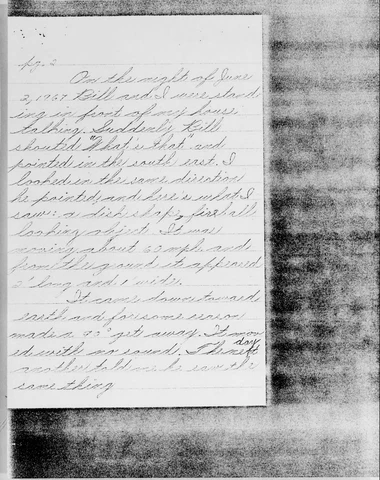 pg. 2
On the night of June
2, 1967 Bill and I were stand
ing in front of my house
talking. Suddenly Bill
shouted "What is that" and
pointed in the south east. I
looked in the same direction
he pointed and here is what I
saw: a dish shape fireball
looking object. It was
moving about 60 mph and
from the ground it appeared
2" long and 1" wide.
It came down toward
earth and for some reason
made a 90° get away. It mov
ed with no sound. The next day
another told me he saw the
same thing